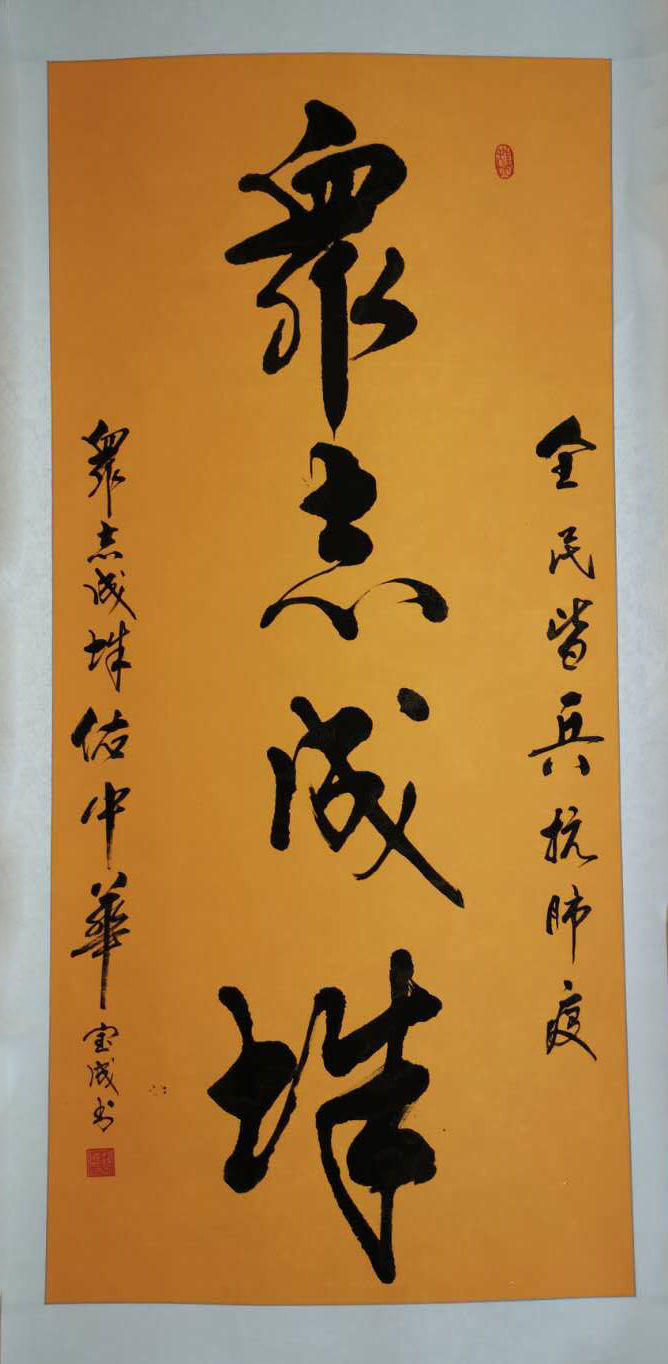 全民皆兵抗肺疫
眾志成城
眾志成城佑中華
宝成书